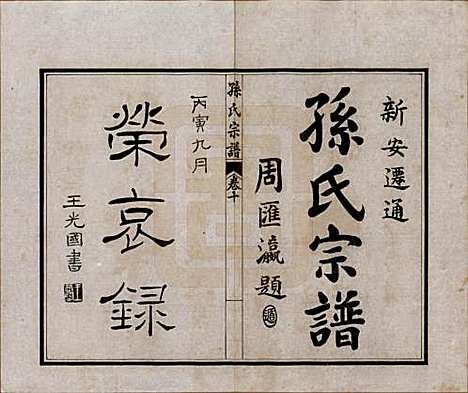 新安遷通
孫氏宗譜
周匯瀛題
孫氏宗譜
卷十
丙寅九月
榮哀錄
王光國書